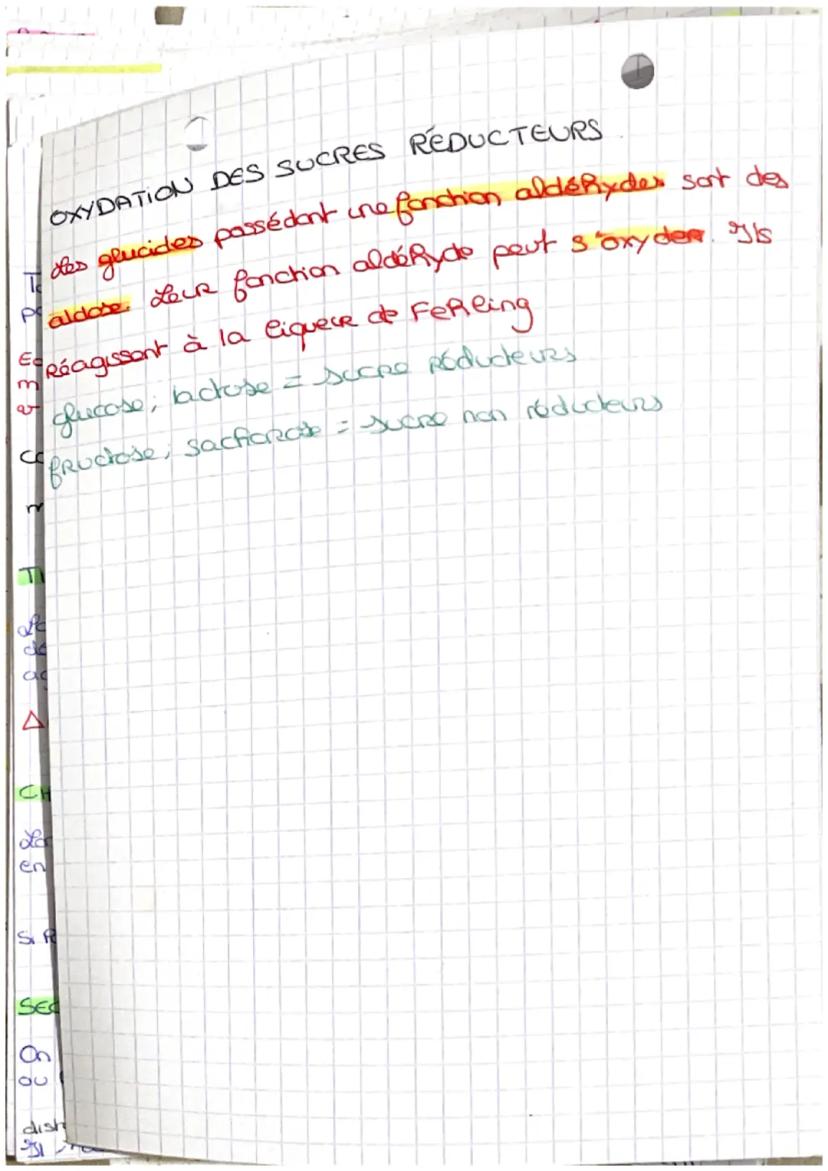 OXYDATION DES SUCRES RÉDUCTEURS
Les glucides possédant une fonction aldéhydes sont des
aldose. Leur fonction aldéhyde peut s'oxyder. Ils
Réagissent à la liqueur de Fehling
glucose, lactose = sucre réducteurs
fructose, saccharose = sucre non réducteurs
TI
CH
Si
SEC
On
ou